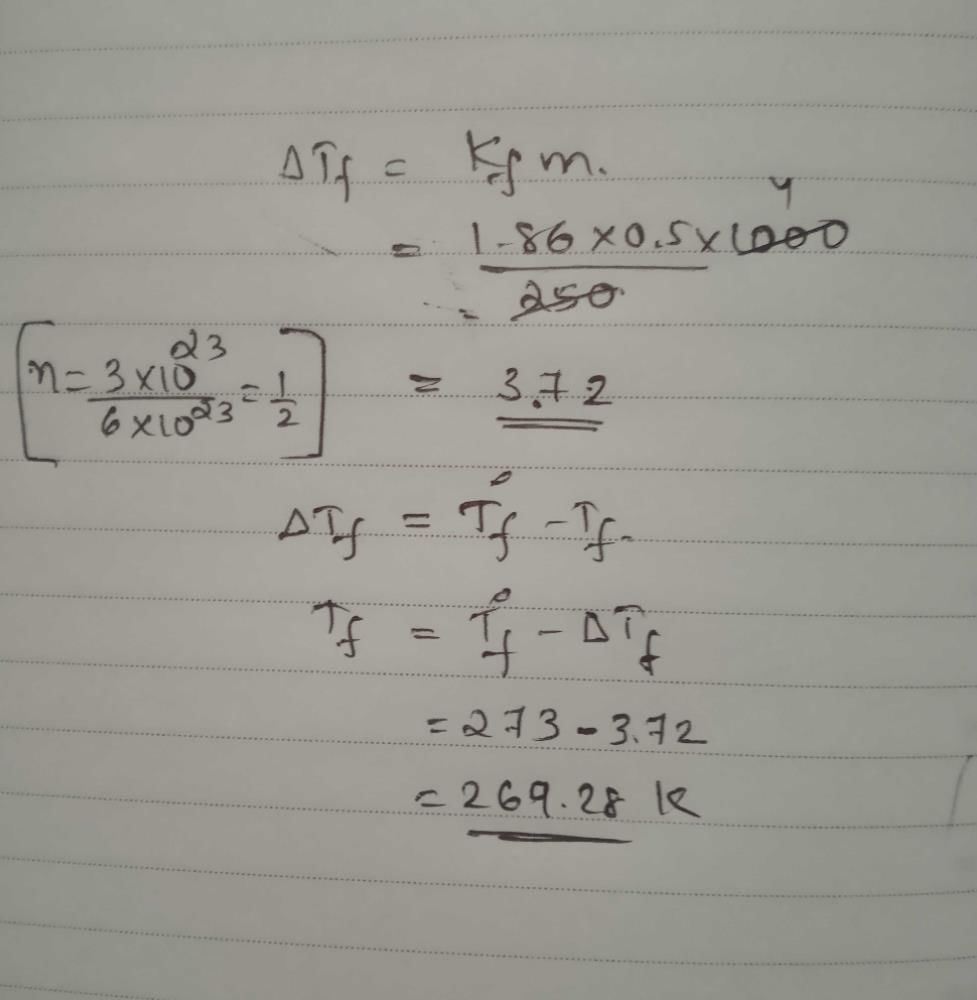 ΔTf = Kf m.
= 1.86 × 0.5 × 1000 4
= 250
[n = 3×10²³ / 6×10²³ = 1/2] = 3.72
ΔTf = T°f - Tf.
Tf = T°f - ΔTf
= 273 - 3.72
= 269.28 K